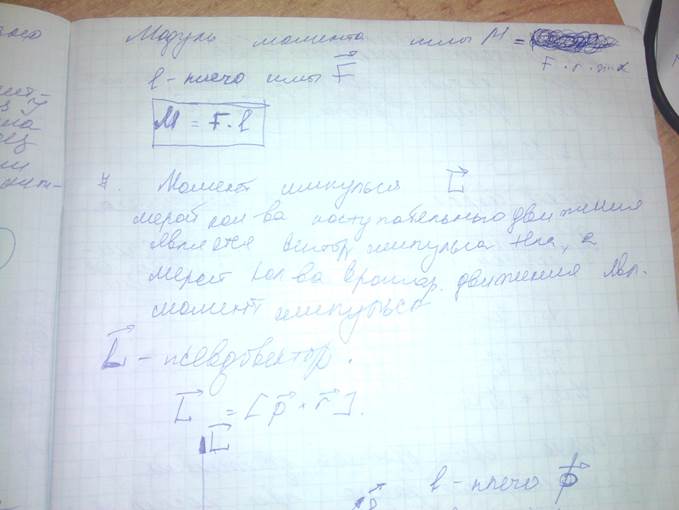 Модуль момента силы M =
F · r · sin α
l - плечо силы F⃗
M = F · l
7. Момент импульса L⃗
мерой кол-ва поступательного движения
является вектор импульса тела, а
мерой кол-ва вращат. движения явл.
момент импульса
L⃗ - псевдовектор.
L⃗ = [p⃗ × r⃗].
L⃗
l - плечо p⃗